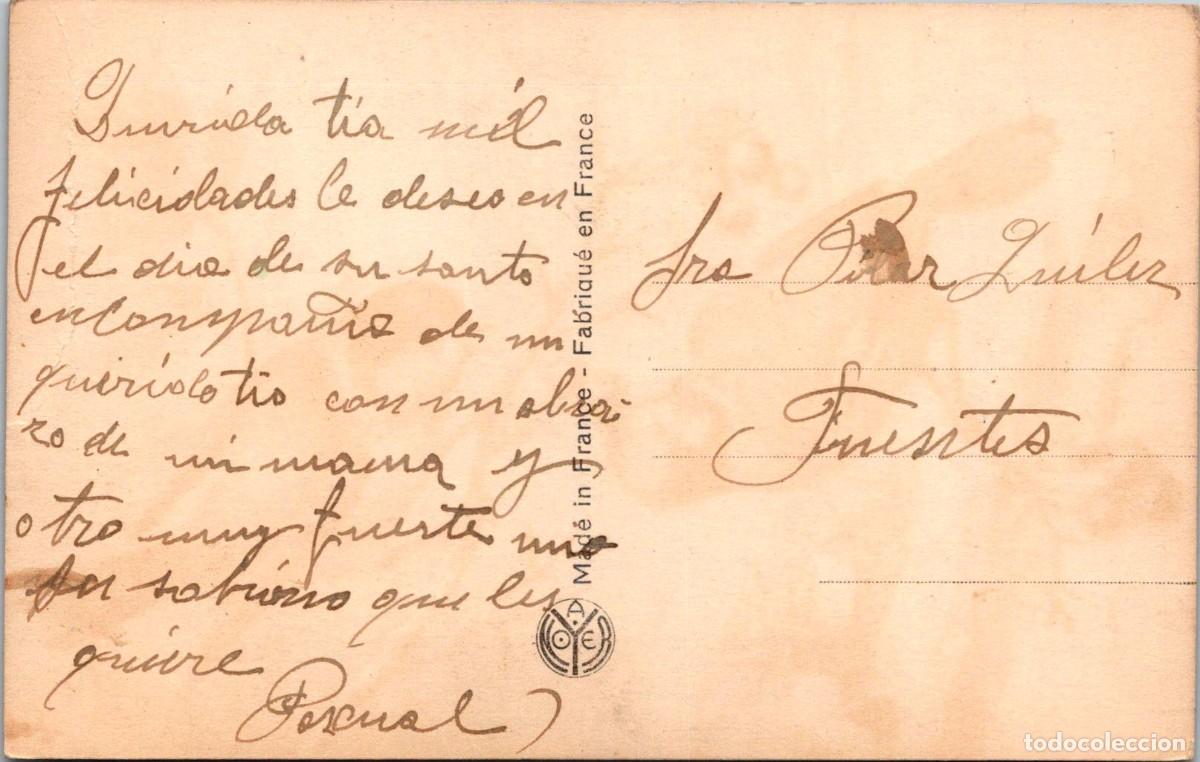 Qurida tia mil
felicidades le deseo en
el dia de su santo
en Compañia de mi
querido tio con un abra
zo de mi mama y
otro muy fuerte
su sobrino que les
quiere
Pascual
Made in France - Fabriqué en France
Sra Pilar Quilez
Fuentes
todocoleccion